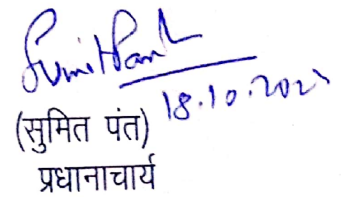 Sumit Pant
18.10.202
(सुमित पंत)
प्रधानाचार्य